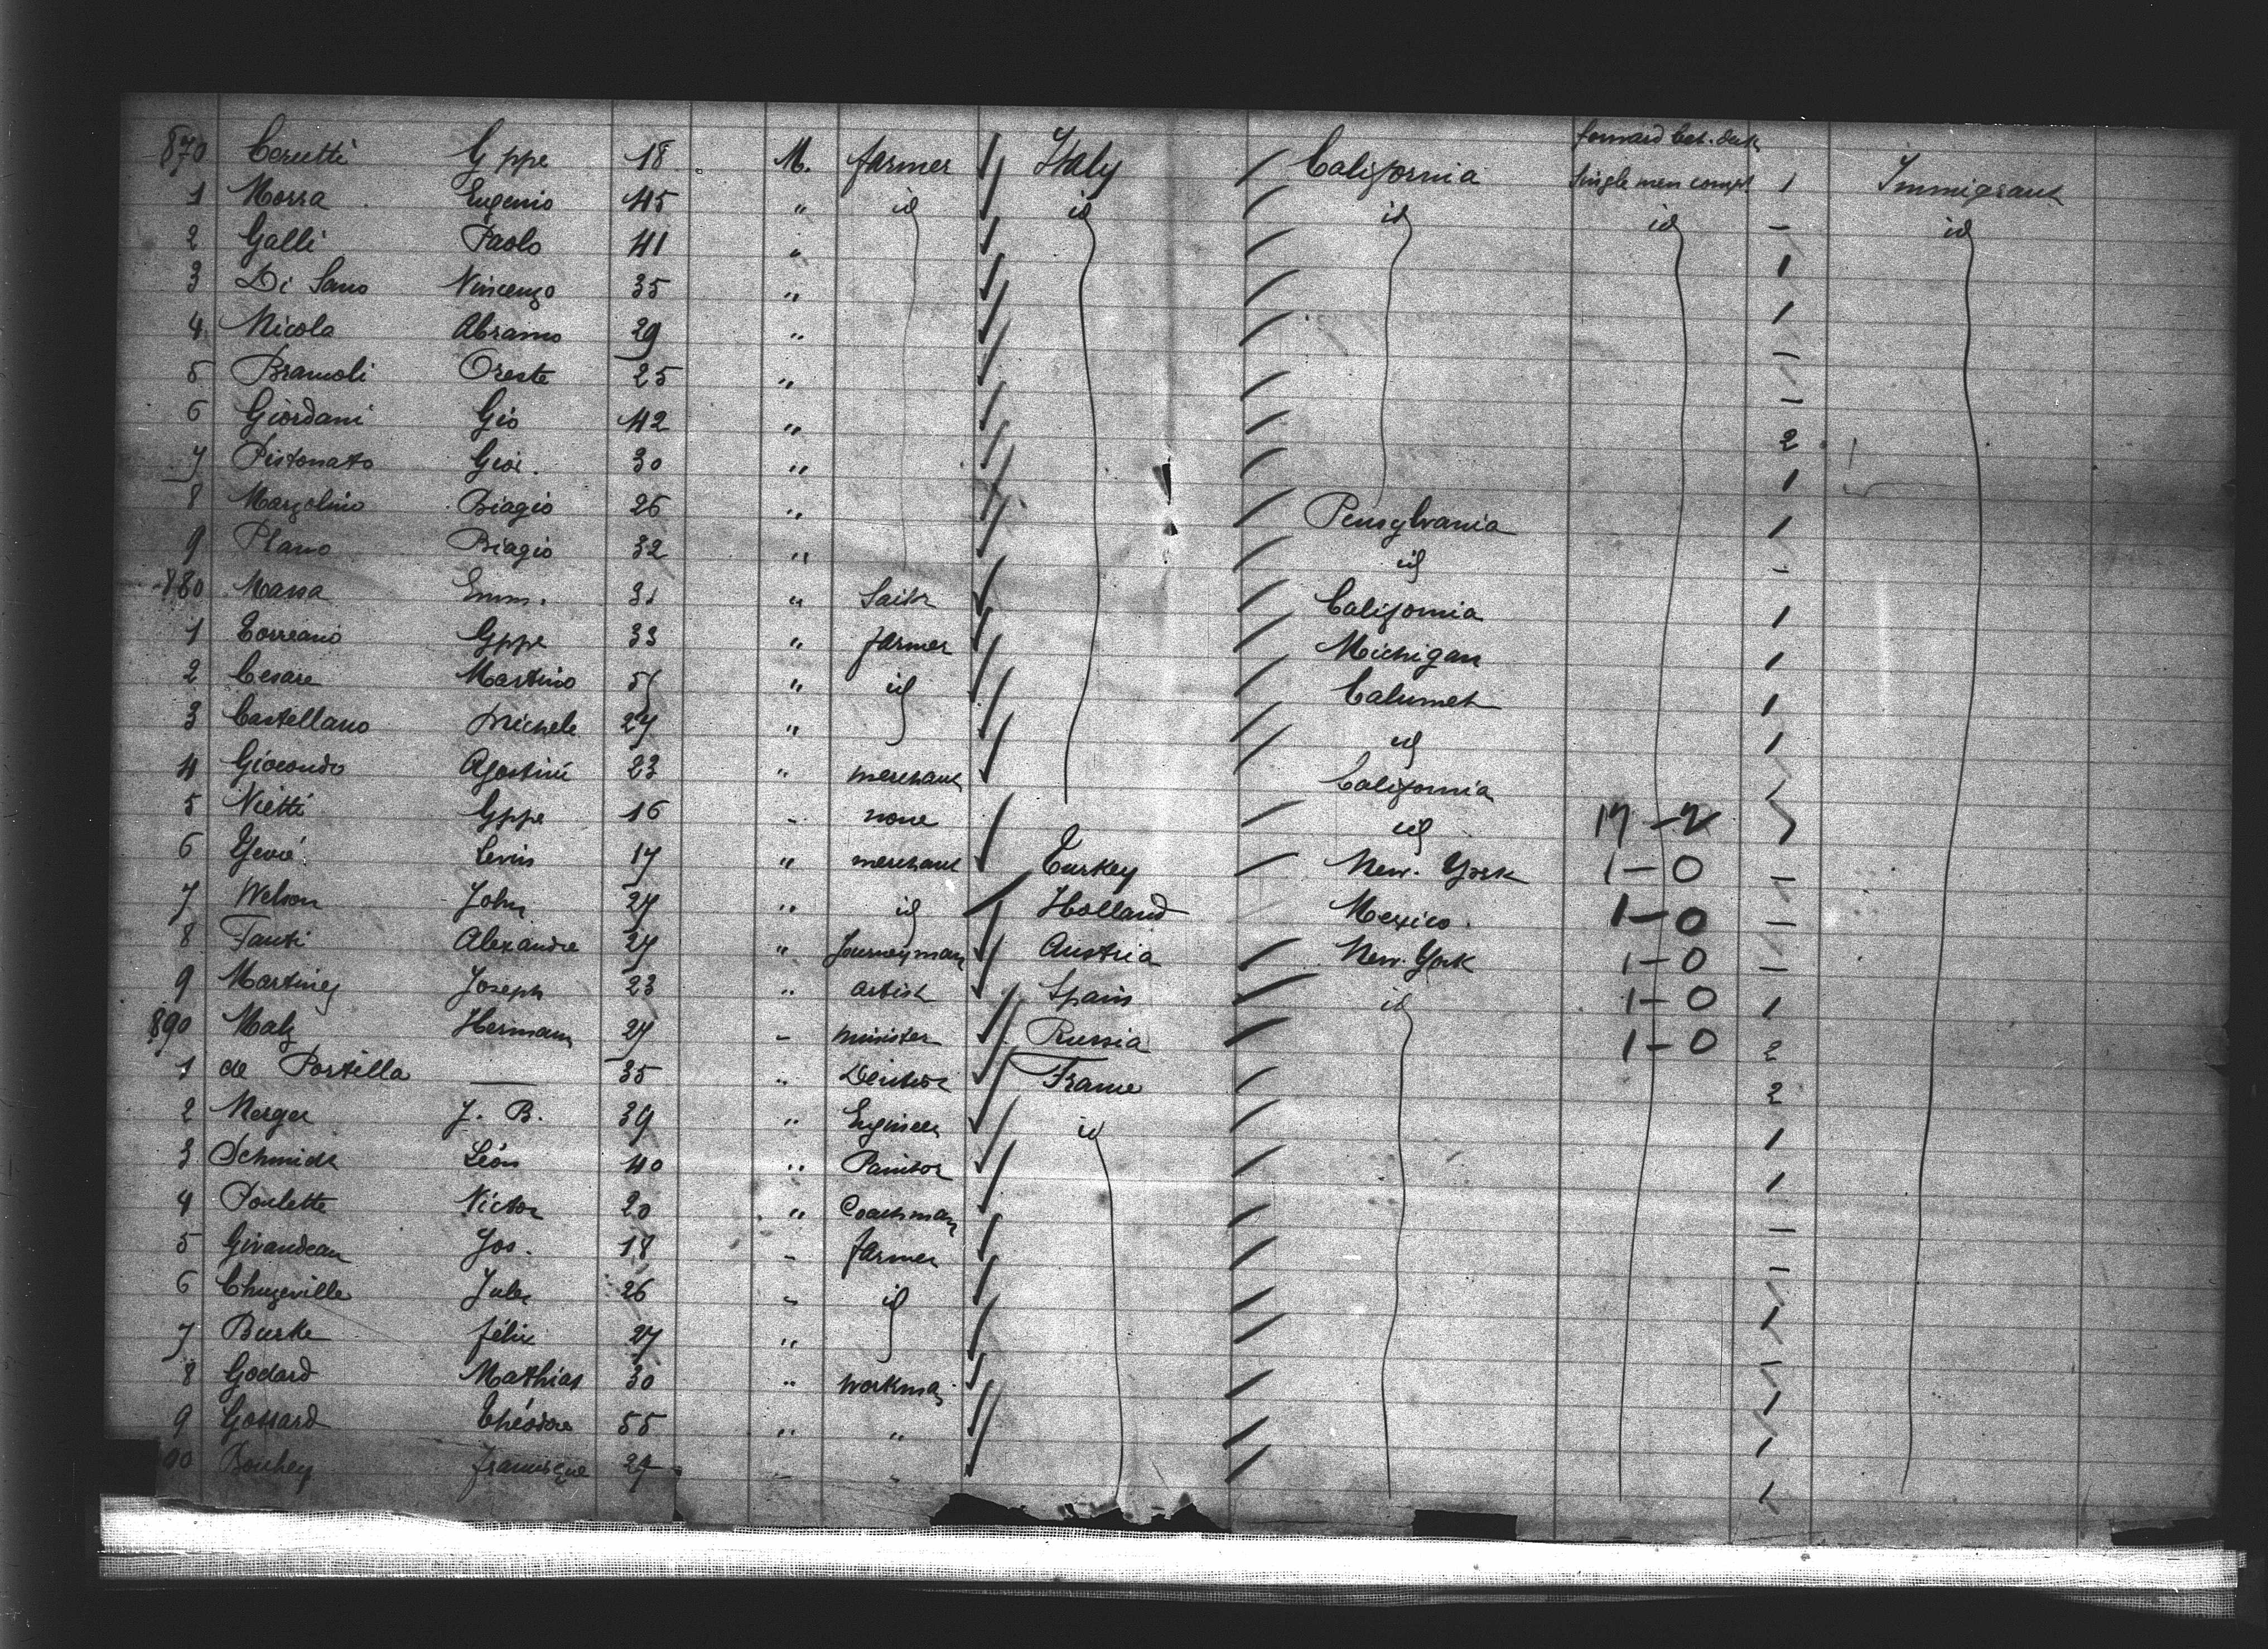 forward bet. deck
870 Cerutti Gppe 18 M. farmer Italy California Single men compt 1 Immigrant
1 Mossa Eugenio 45 " id id id id - id
2 Galli Paolo 41 " 1
3 Di Sano Vincenzo 35 " 1
4 Nicola Abramo 29 " -
5 Bramoli Oreste 25 " -
6 Giordani Gio 42 " 2
7 Pistonato Giov. 30 " 1
8 Marzolino Biagio 26 " Pensylvania 1
9 Plano Biagio 32 " id -
880 Massa Emm. 31 " California 1
1 Torreano Gppe 33 " farmer Michigan 1
2 Cesare Martino 51 " id Calumet 1
3 Castellano Michele 27 " id 1
4 Giocondo Agostini 23 " merchant California
5 Vietti Gppe 16 " none id 17-2
6 Levis 17 " merchant Turkey New. York 1-0 -
7 Welson John 27 " id Holland Mexico. 1-0 -
8 Fanti Alexandre 27 " Journeyman Austria New. York 1-0 -
9 Martinez Joseph 23 " artist Spain id 1-0 1
890 Malz Hermann 27 - minister Russia 1-0 2
1 de Portilla — 35 " France 2
2 Merger J. B. 39 " Engineer id 1
3 Schmidt Léon 40 " 1
4 Poulette Victor 20 " Coachman -
5 Girandeau Jos. 18 - farmer -
6 Chuzeville Jules 26 - id 1
7 Burke félix 27 " -
8 Godard Mathias 30 " workman 1
9 Gossard Théodore 55 " " 1
00 Bouhey francisque 27 - - 1